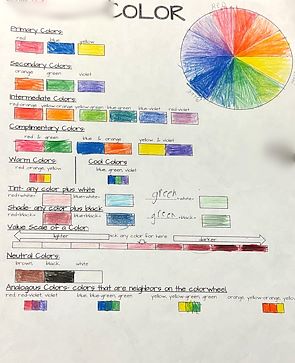 COLOR
Primary Colors:
red blue yellow
Secondary Colors:
orange green violet
Intermediate Colors:
red-orange yellow-orange yellow-green blue-green blue-violet red-violet
Complimentary Colors:
red & green blue & orange yellow & violet
Warm Colors: Cool Colors:
red, orange, yellow blue, green, violet
Tint- any color plus white
red+white= blue+white= green +white=
Shade- any color plus black
red+black= blue+black= green +black=
Value Scale of a Color:
lighter pick any color for here darker
Neutral Colors:
brown black white
Analogous Colors- colors that are neighbors on the colorwheel
red, red-violet, violet blue, blue-green, green yellow, yellow-green, green orange, yellow-orange,